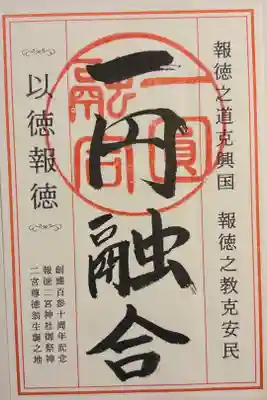 報徳之道克興国　報徳之教克安民
一円融合
一圓融合
以徳報徳
創建百参十周年記念
報徳二宮神社御祭神
二宮尊徳翁生誕之地